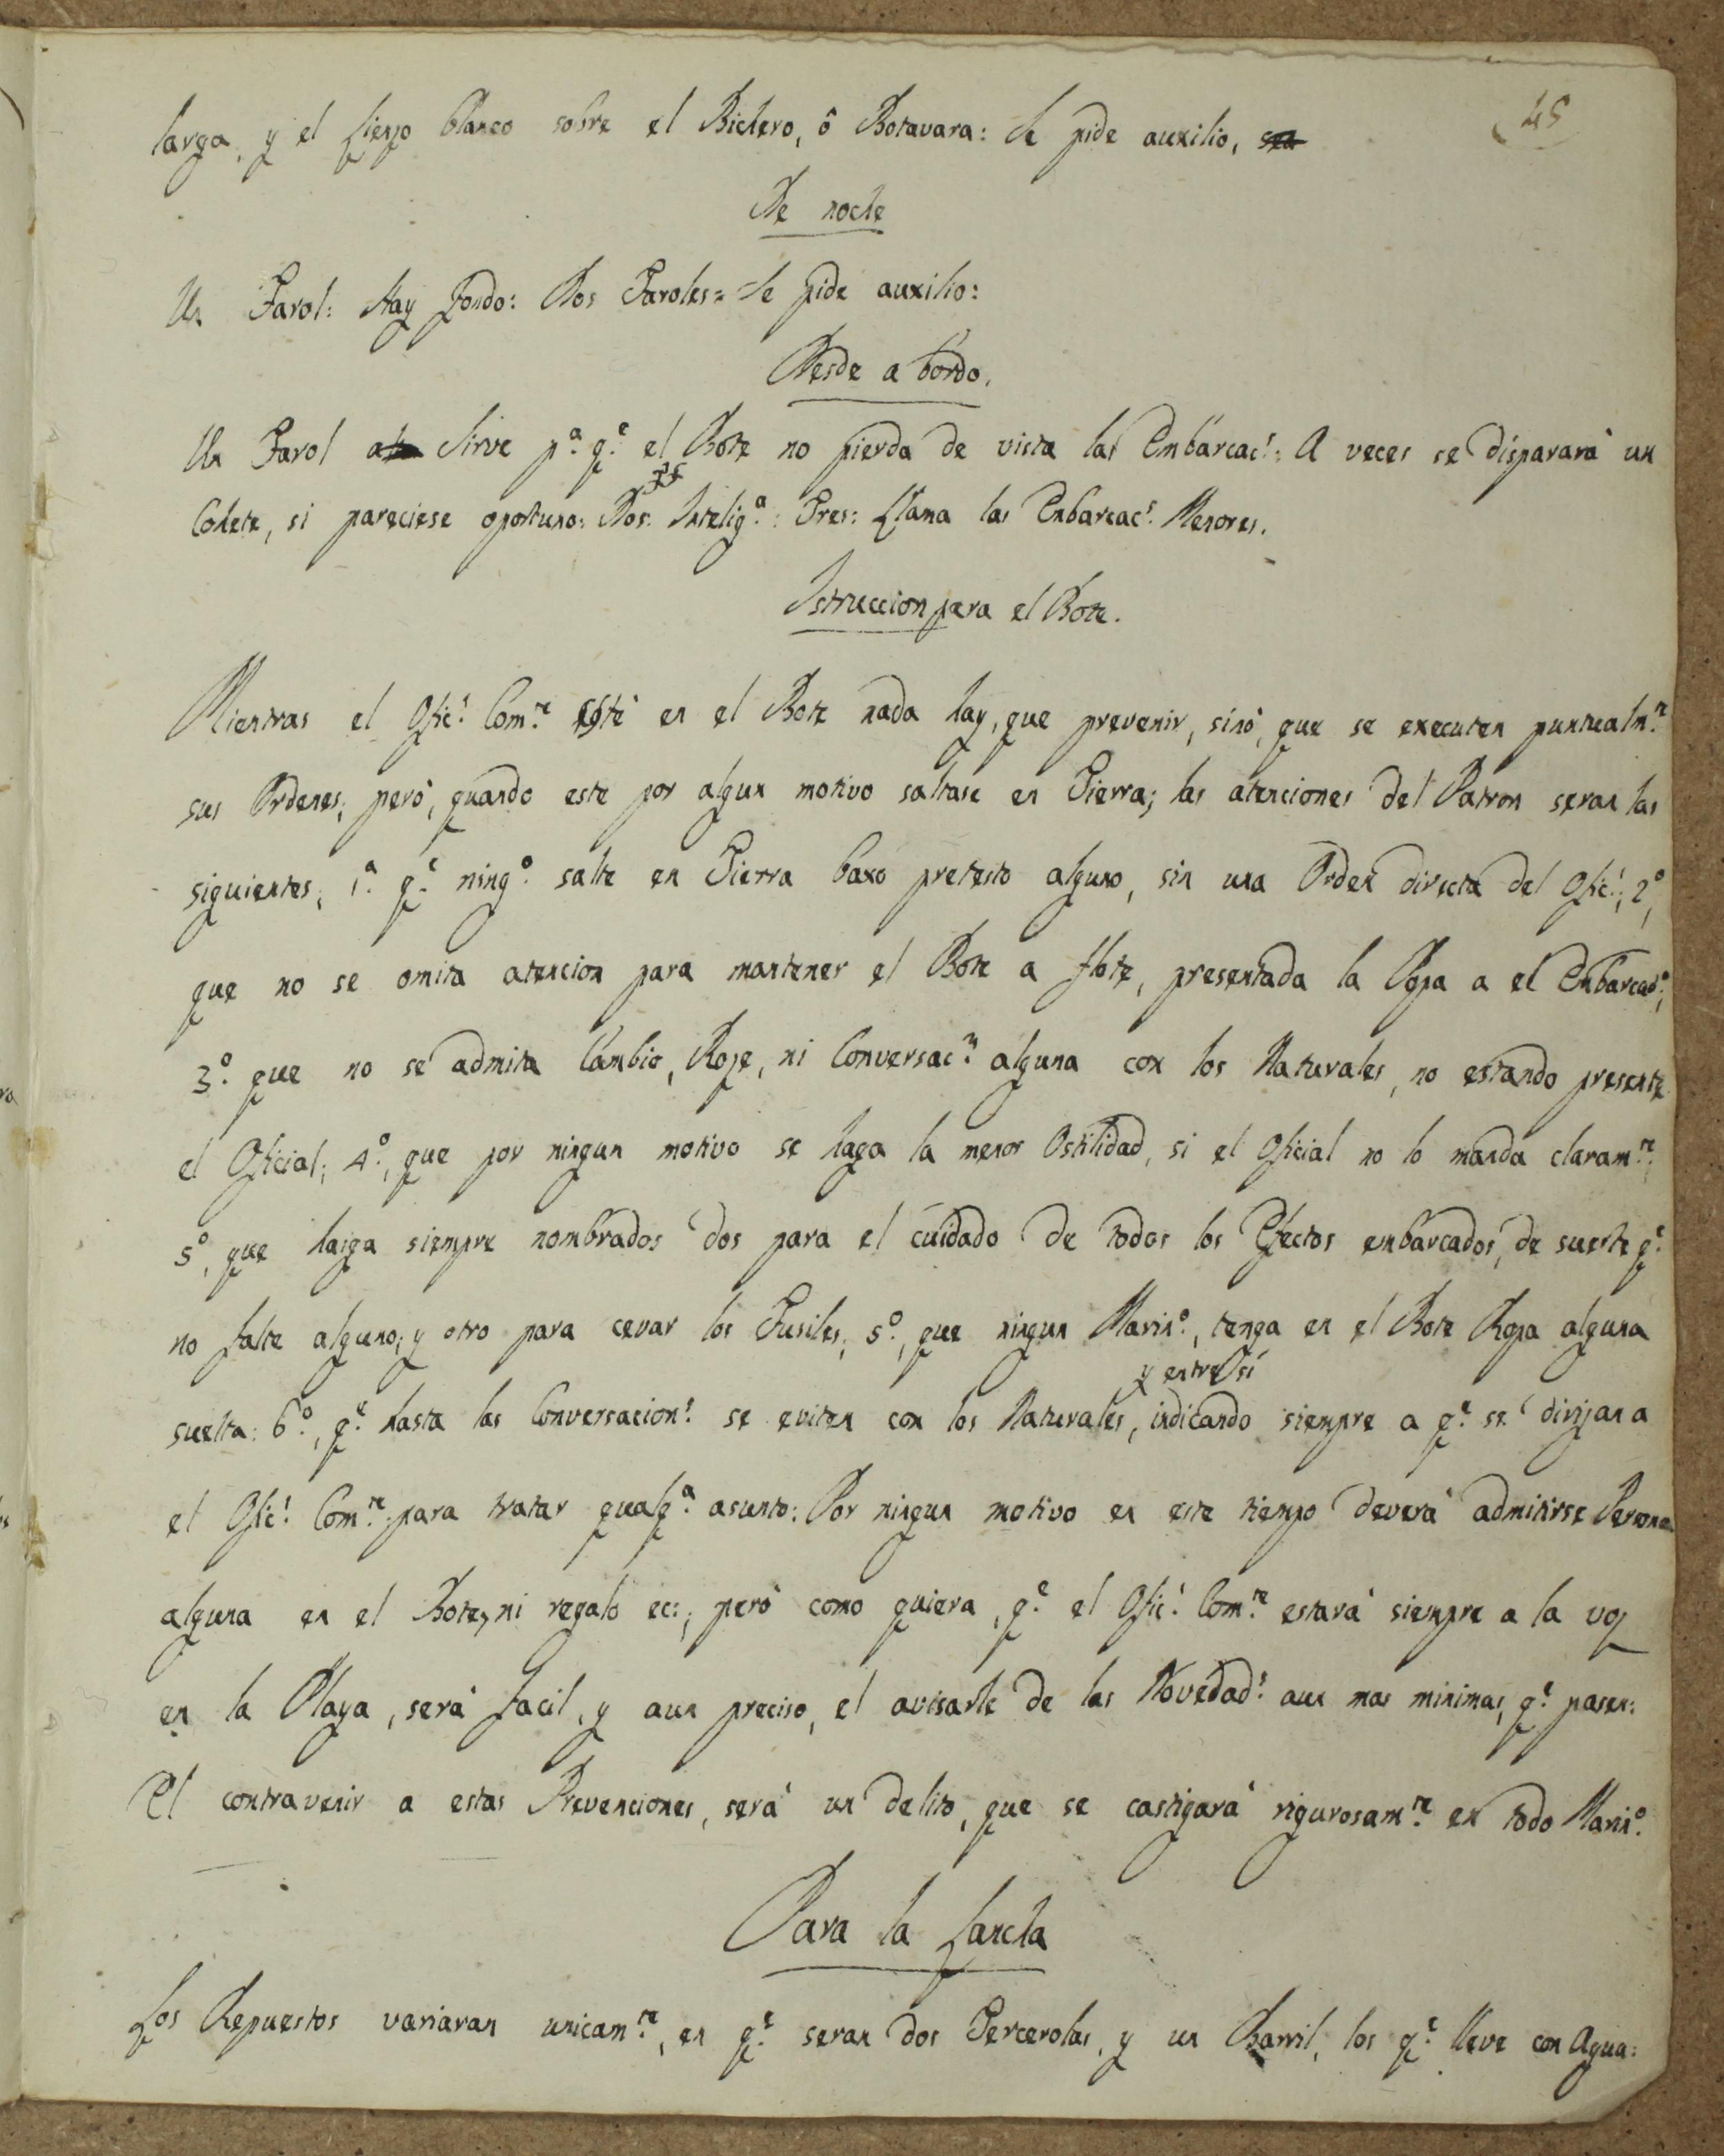 45
larga, y el Lienzo blanco sobre el Bichero, ô Botavara: Se pide auxilio, sea
De noche
Un Farol: Hay fondo: Dos Faroles= Se pide auxilio:
Desde a bordo.
Un Farol Sirve pª qe el Bote no pierda de vista las Embarcacs: A veces se disparará un
Cohete, si pareciese oportuno: Dos: Inteligª: Tres: Llama las Embarcacs Menores.
Istruccion para el Bote.
Mientras el Oficl Comte esté en el Bote nada hay, que prevenir, sinó, que se executen puntualmte
sus Ordenes; peró, quando este por algun motivo saltase en Tierra; las atenciones del Patron seran las
siguientes; 1ª qe ningº salte en Tierra baxo pretesto alguno, sin una Orden directa del Oficl; 2º,
que no se omita atencion para mantener el Bote a flote, presentada la Popa a el Embarcadº;
3º que no se admita Cambio, Roze, ni Conversacn alguna con los Naturales, no estando presente
el Oficial; 4º, que por ningun motivo se haga la menor Ostilidad, si el Oficial no lo manda claramte;
5º, que haiga siempre nombrados dos para el cuidado de todos los Efectos embarcados, de suerte qe
no falte alguno; y otro para cevar los Fusiles; 5º, que ningun Marinº, tenga en el Bote Ropa alguna
y entre Sí
suelta: 6º, qe hasta las Conversacions se eviten con los Naturales, indicando siempre a qe se dirijan a
el Oficl Comte para tratar qualqª asunto: Por ningun motivo en este tiempo deverá admitirse Persona
alguna en el Bote, ni regalo ec:; peró como quiera, qe el Oficl Comte estará siempre a la voz
en la Playa, será facil, y aun preciso, el avisarle de las Novedads aun mas minimas, qe pasen:
El contravenir a estas Prevenciones, será un delito, que se castigará rigurosamte en todo Marinº
Para la Lancha
Los Repuestos variaran unicamte, en qe seran dos Tercerolas, y un Barril, los qe lleve con Agua: